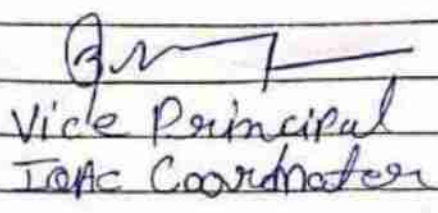 Vice Principal
IQAC Coordinator